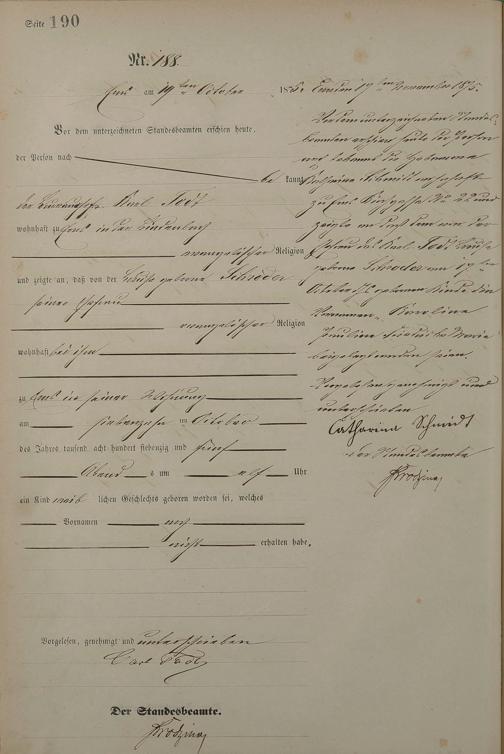 Seite 190
Nr. 188.
Ems am 19ten October 1875.
Vor dem unterzeichneten Standesbeamten erschien heute,
der Person nach
be kannt,
der Karl Todt
wohnhaft zu Ems in der
evangelischer Religion
und zeigte an, daß von der Louise geborene Schröder
seiner Ehefrau
evangelischer Religion
wohnhaft bei ihm
zu Ems in seiner Wohnung
am siebenzehn ten October
des Jahres tausend acht hundert siebenzig und fünf
Abend s um elf Uhr
ein Kind weib lichen Geschlechts geboren worden sei, welches
Vornamen noch
nicht erhalten habe.
Vorgelesen, genehmigt und unterschrieben
Carl Todt
Der Standesbeamte.
Ems den 19ten November 1875.
Vor dem unterzeichneten Standes-
beamten erschien heute der Person
nach bekannt die Hebamme
Catharina Schmidt wohnhaft
zu Ems No 22 und
zeigte an daß dem von der
Ehefrau des Karl Todt Louise
geborene Schröder am 17ten
October geborenen Kinde die
Vornamen Karolina
Maria
beigelegt worden seien.
Vorgelesen genehmigt und
unterschrieben
Catharina Schmidt
Der Standesbeamte